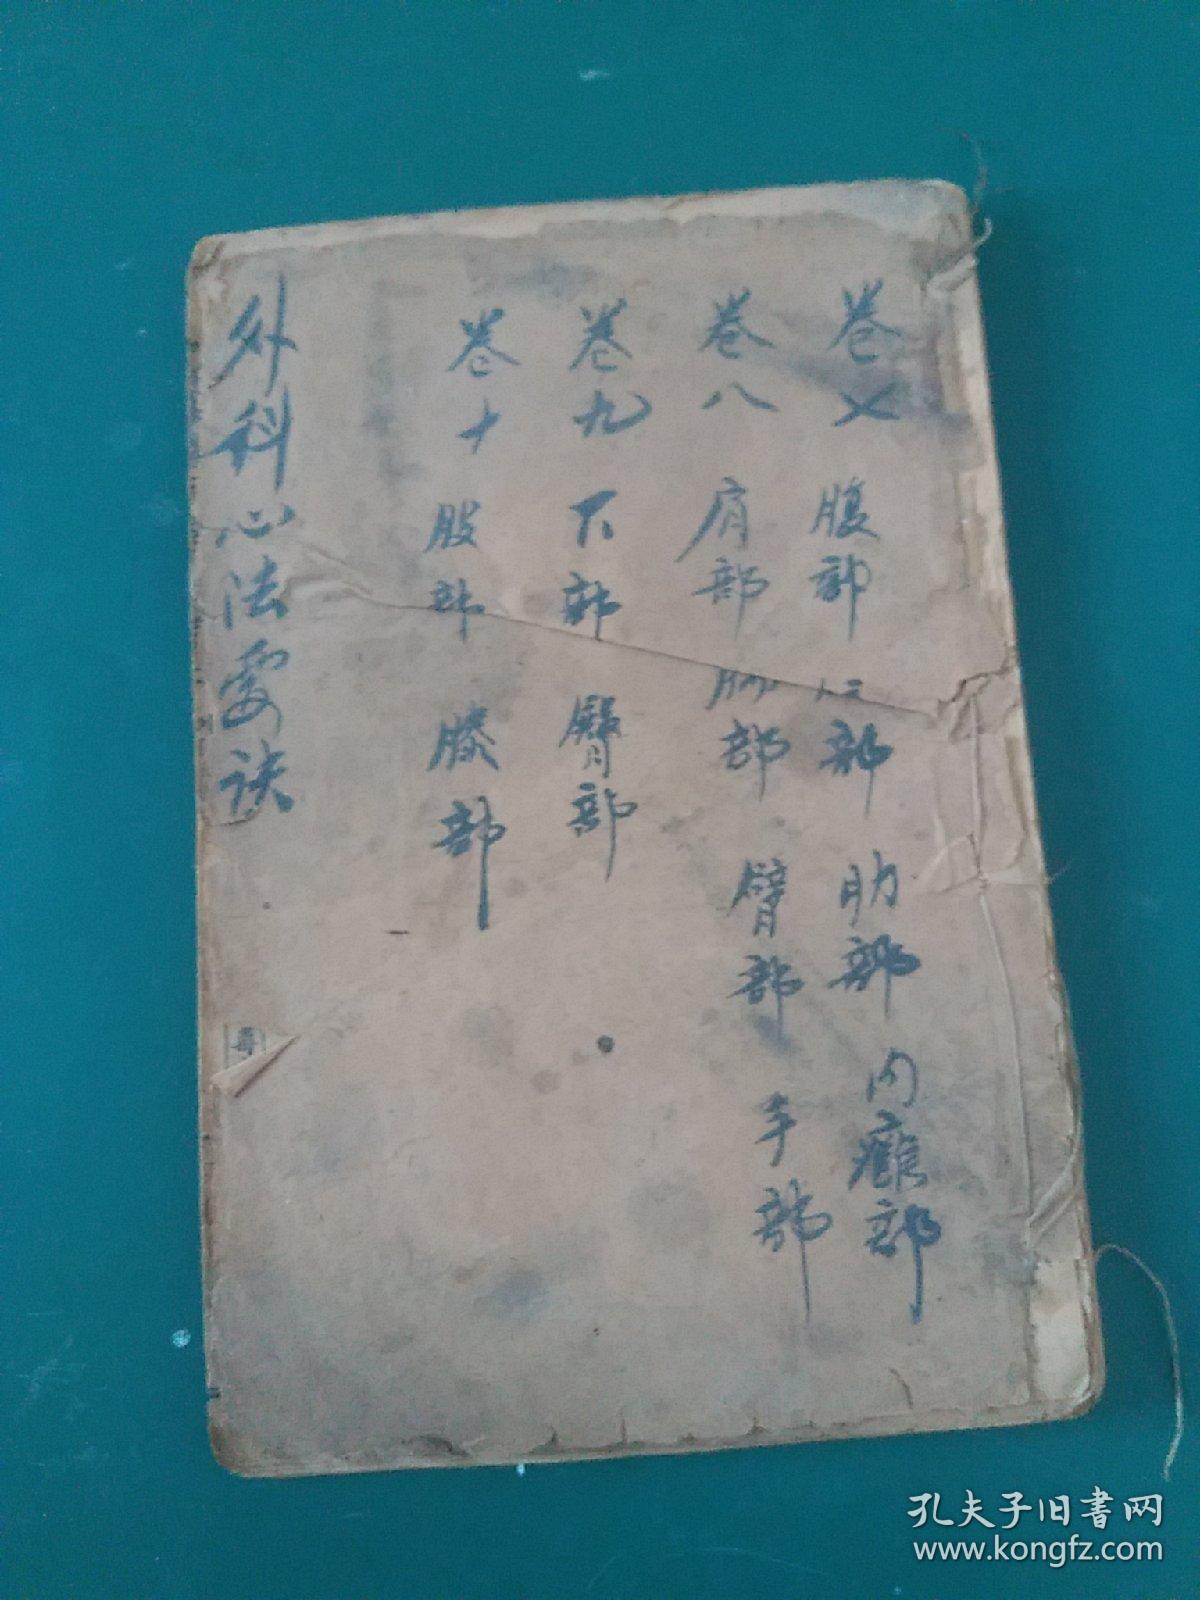 卷七 腹部 部 肋部 内癰部
卷八 肩部 部 臂部 手部
卷九 下部 臀部
卷十 股部 膝部
外科心法要诀
孔夫子旧书网
www.kongfz.com